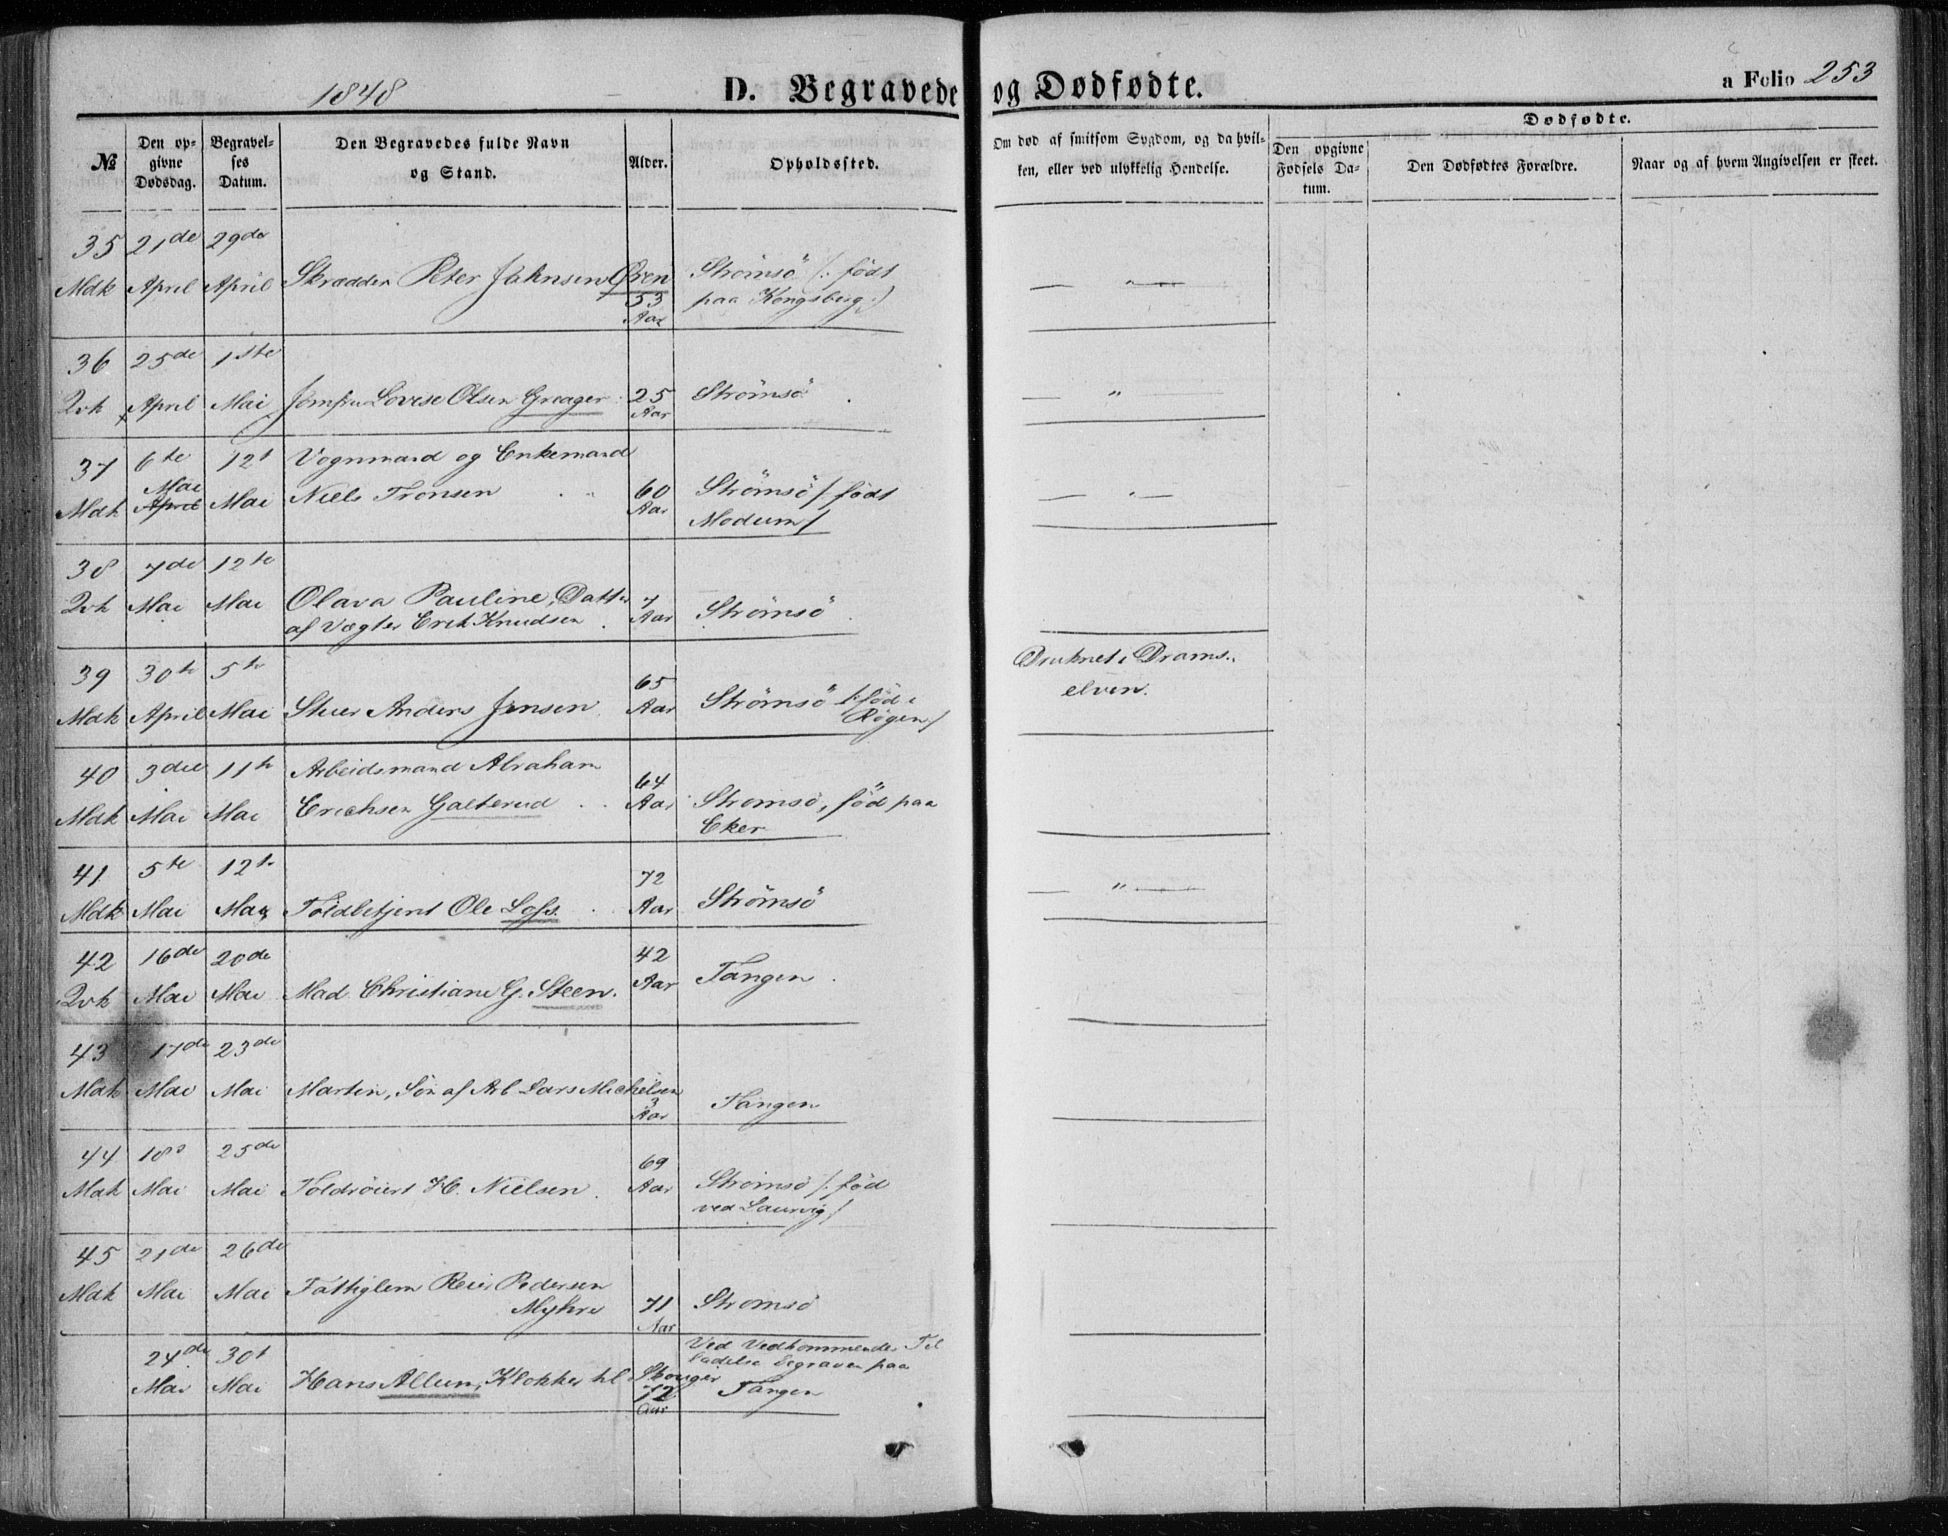 1848
D. Begravede og Dødfødte.
a Folio 253
№
Den opgivne Dødsdag.
Begravelses Datum.
Den Begravedes fulde Navn og Stand.
Alder.
Opholdssted.
Om død af smitsom Sygdom, og da hvilken, eller ved ulykkelig Hendelse.
Dødfødte.
Den opgivne Fødsels Datum.
Den Dødfødtes Forældre.
Naar og af hvem Angivelsen er skeet.
35 21de 29de
Mdk April April Skrædder Peter Johnsen Øren 53 Aar Strømsö /: födt
paa Kongsberg :/
— " —
36 25de 1ste
Qvk April Mai Jomfru Lovise Olsen Greager 25 Aar Strømsö
— "
37 6te 12t Vognmand og Enkemand
Mdk Mai April Mai Niels Tronsen 60 Aar Strømsö / födt
Modum /
— " —
38 7de 12te
Qvk Mai Mai Olava Pauline, Datter 7 Aar Strømsö
af Vægter Erik Knudsen
39 30te 5te
Mdk April Mai Stuer Anders Jensen 65 Aar Strømsö /: föd i
Røgen /
Druknet i Drams-
elven.
40 3die 11te Arbeidsmand Abraham
Mdk Mai Mai Erichsen Galterud 64 Aar Stromsö, föd paa
Eker
41 5te 12te
Mdk Mai Mai Toldbetjent Ole Lofs 72 Aar Strømsö
— " —
42 16de 20de
Qvk Mai Mai Mad. Christiane G. Steen. 42 Aar Tangen
43 17de 23de
Mdk Mai Mai Martin, Sön af Arb Lars Michelsen 3 Aar Tangen
44 18de 25de
Mdk Mai Mai Toldröiert H. Nielsen 69 Aar Strömsö /: föd
ved Laurvig /
45 21de 26de
Mdk Mai Mai Fattiglem Reier Pedersen
Myhre 71 Aar Stromsö
24de 30t
Mai Mai Hans Allum, Klokker til Skouger 72 Aar
Ved Vedkommendes Til
ladelse begraven paa
Tangen